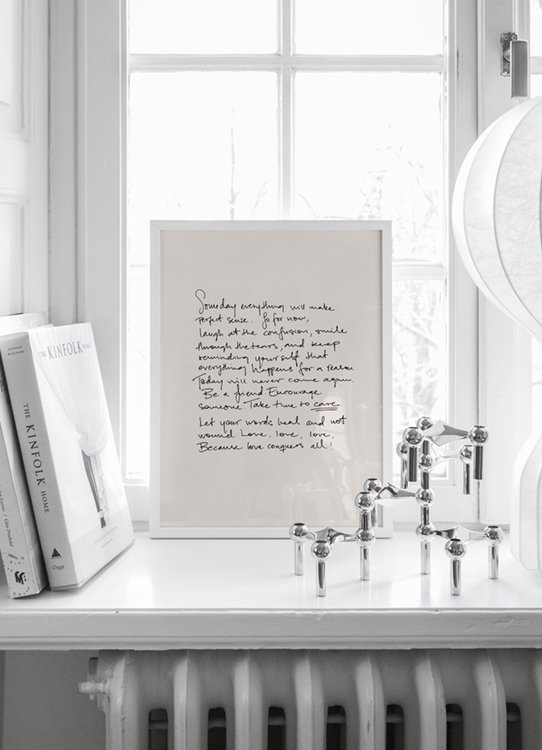 Someday everything will make
perfect sense. So for now,
laugh at the confusion, smile
through the tears, and keep
reminding yourself that
everything happens for a reason
Today will never come again.
Be a friend Encourage
someone Take time to care
Let your words heal and not
wound Love, love, love,
Because love conquers all!
THE KINFOLK
THE KINFOLK HOME